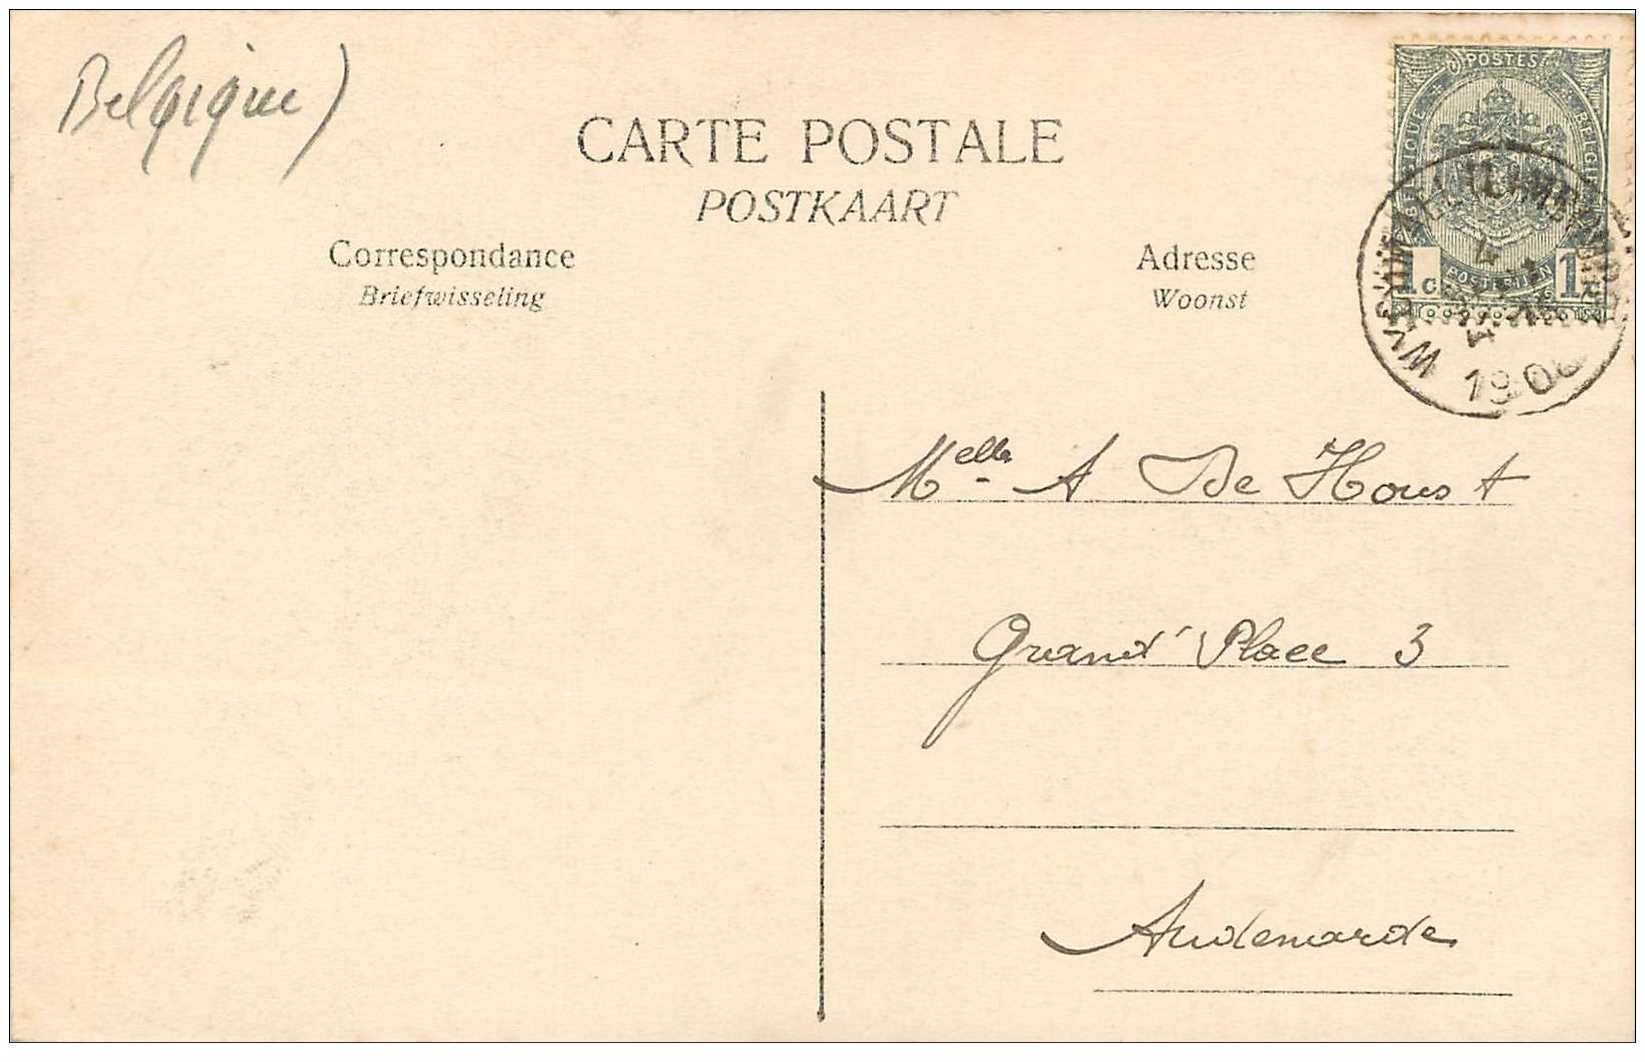 Belgique)
CARTE POSTALE
POSTKAART
Correspondance
Briefwisseling
Adresse
Woonst
POSTES
BELGIQUE
1 C
POSTERIJEN
1
1908
Melle A De Houst
Grand' Place 3
Audenarde